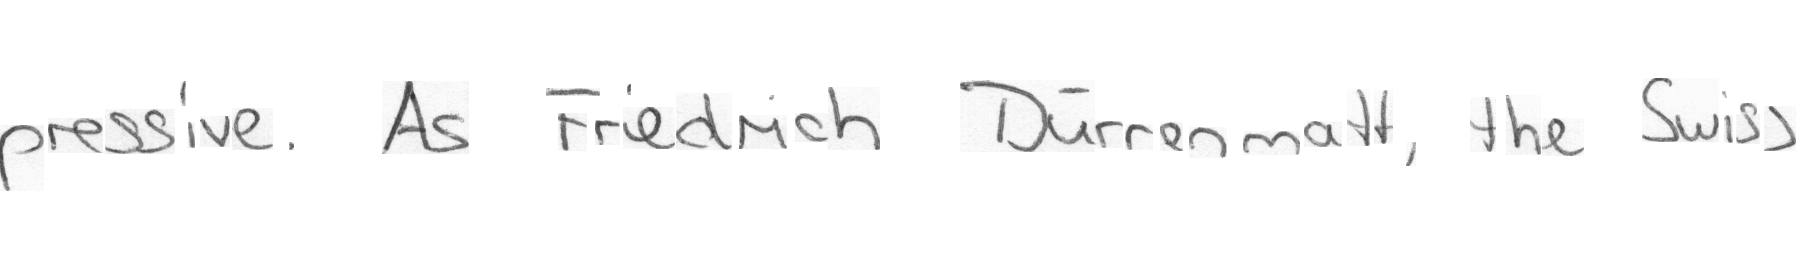 pressive. As Friedrich Dürrenmatt, the Swiss